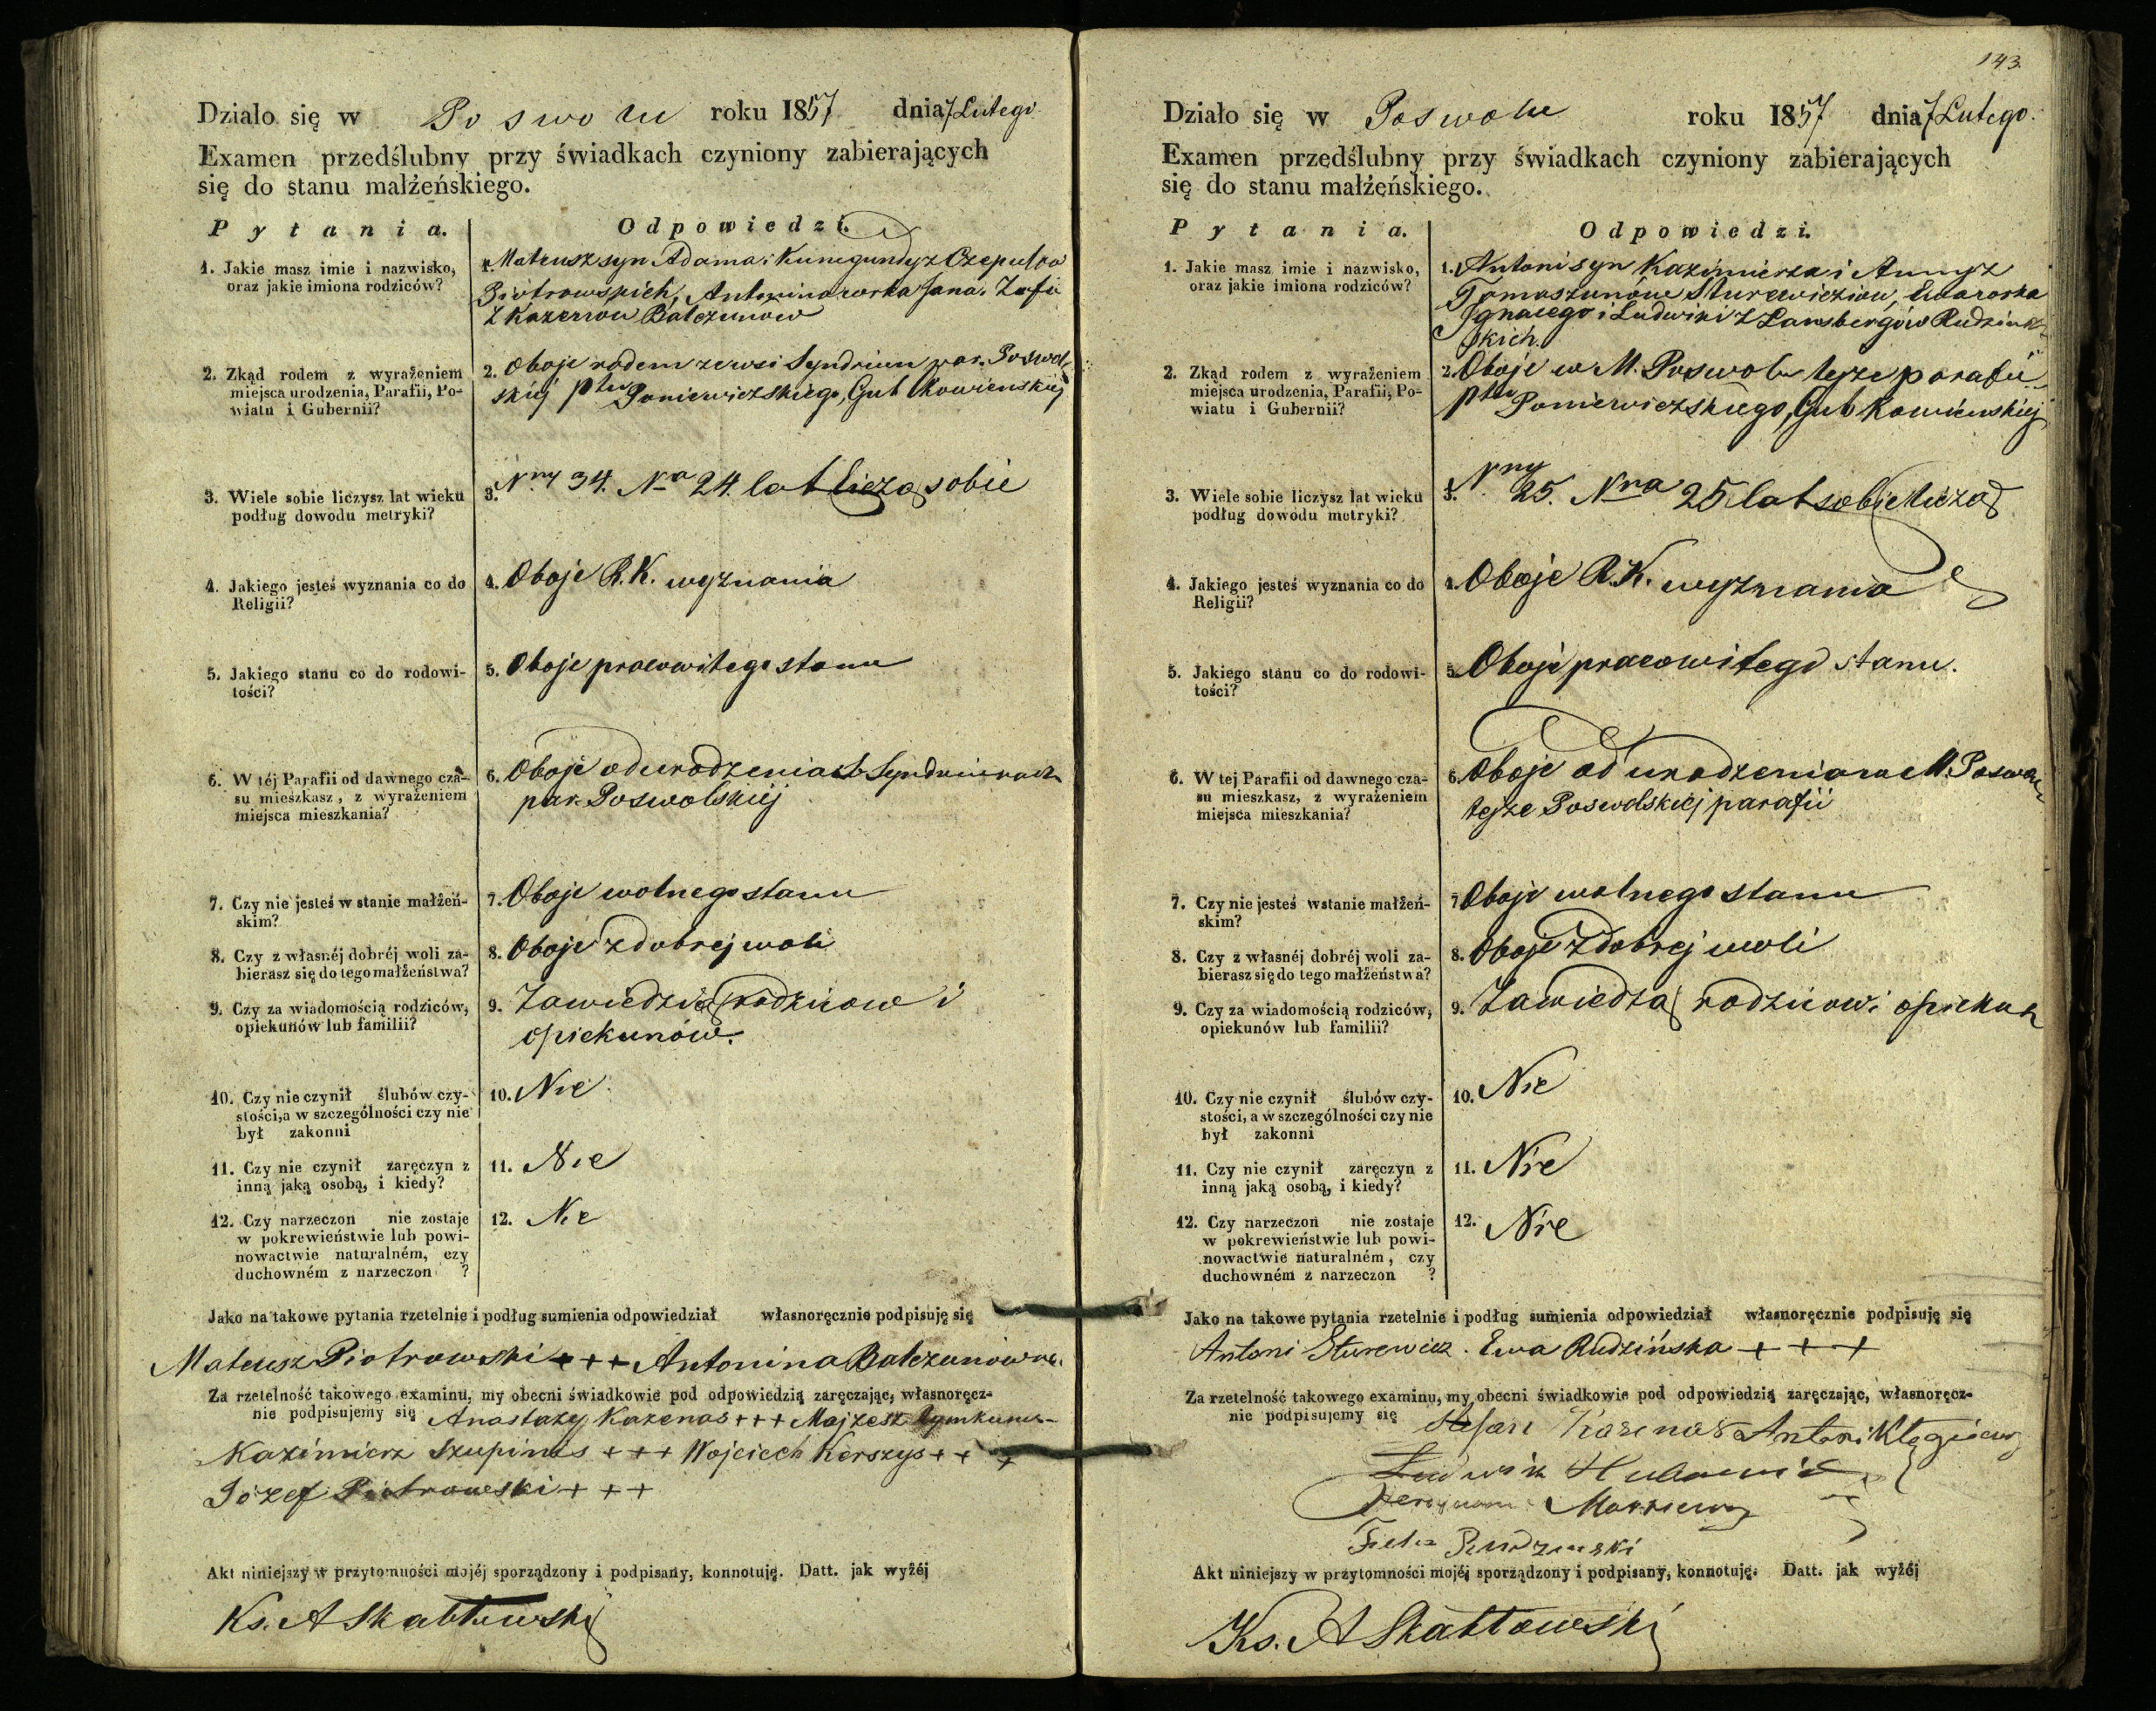 Działo się w Poswolu roku 1857 dnia 7 Lutego.
Examen przedślubny przy świadkach czyniony zabierających
się do stanu małżeńskiego.
Pytania. Odpowiedzi.
1. Jakie masz imie i nazwisko,
oraz jakie imiona rodziców?
1. Mateusz syn Adama i Kunegundy z
Piotrowskich, Antonina corka Jana i Zofii
z Balczunow
2. Zkąd rodem z wyrażeniem
miejsca urodzenia, Parafii, Po-
wiatu i Gubernii?
2. Oboje rodem ze wsi par. Poswol-
skiej ptu Poniewiezskiego, Gub Kowienskiej
3. Wiele sobie liczysz lat wieku
podług dowodu metryki?
3. Nny 34. Na 24. lat liczą sobie
4. Jakiego jesteś wyznania co do
Religii?
4. Oboje R. K. wyznania
5. Jakiego stanu co do rodowi-
tości?
5. Oboje pracowitego stanu
6. W téj Parafii od dawnego cza-
su mieszkasz, z wyrażeniem
miejsca mieszkania?
6. Oboje od urodzenia
par. Poswolskiéj
7. Czy nie jesteś w stanie małżeń-
skim?
7. Oboje wolnego stanu
8. Czy z własnéj dobréj woli za-
bierasz się do tego małżeństwa?
8. Oboje z dobrej woli
9. Czy za wiadomością rodziców,
opiekunów lub familii?
9. Za wiedzą rodzicow i
opiekunów.
10. Czy nie czynił ślubów czy-
stości, a w szczególności czy nie
był zakonni
10. Nie
11. Czy nie czynił zaręczyn z
inną jaką osobą, i kiedy?
11. Nie
12. Czy narzeczon nie zostaje
w pokrewieństwie lub powi-
nowactwie naturalném, czy
duchowném z narzeczon ?
12. Nie
Jako na takowe pytania rzetelnie i podług sumienia odpowiedział własnoręcznie podpisuję się
Mateusz Piotrowski +++ Antonina Balczunowna
Za rzetelność takowego examinu, my obecni świadkowie pod odpowiedzią zaręczając, własnoręcz-
nie podpisujemy się Anastazy Kazenas +++ Majzesz
Kazimierz Szupinis +++ Wojciech Kerszys +++
Józef Piotrowski +++
Akt niniejszy w przytomności mojéj sporządzony i podpisany, konnotuję. Datt. jak wyżéj
Ks. A Skabtowski
143.
Działo się w Poswolu roku 1857 dnia 7 Lutego.
Examen przedślubny przy świadkach czyniony zabierających
się do stanu małżeńskiego.
Pytania. Odpowiedzi.
1. Jakie masz imie i nazwisko,
oraz jakie imiona rodziców?
1. Antoni syn Kazimierza i Anny z
Tomaszunów Sturewiczow, Ewa corka
Ignacego i Ludwiki z Lansbergów Rudzin-
skich.
2. Zkąd rodem z wyrażeniem
miejsca urodzenia, Parafii, Po-
wiatu i Gubernii?
2. Oboje w M. Poswolu tejze parafii
ptu Poniewiezskiego, Gub Kowienskiej
3. Wiele sobie liczysz lat wieku
podług dowodu metryki?
3. Nny 25. Nna 25 lat sobie liczą
4. Jakiego jesteś wyznania co do
Religii?
4. Oboje R. K. wyznania
5. Jakiego stanu co do rodowi-
tości?
5. Oboje pracowitego stanu.
6. W tej Parafii od dawnego cza-
su mieszkasz, z wyrażeniem
miejsca mieszkania?
6. Oboje od urodzenia w M. Poswolu
tejze Poswolskiej parafii
7. Czy nie jesteś wstanie małżeń-
skim?
7. Oboje wolnego stanu
8. Czy z własnéj dobréj woli za-
bierasz się do tego małżeństwa?
8. Oboje z dobrej woli
9. Czy za wiadomością rodziców,
opiekunów lub familii?
9. Za wiedzą rodzicow i opiekun
10. Czy nie czynił ślubów czy-
stości, a w szczególności czy nie
był zakonni
10. Nie
11. Czy nie czynił zaręczyn z
inną jaką osobą, i kiedy?
11. Nie
12. Czy narzeczon nie zostaje
w pokrewieństwie lub powi-
nowactwie naturalném, czy
duchowném z narzeczon ?
12. Nie
Jako na takowe pytania rzetelnie i podług sumienia odpowiedział własnoręcznie podpisuję się
Antoni Sturewicz. Ewa Rudzińska +++
Za rzetelność takowego examinu, my obecni świadkowie pod odpowiedzią zaręczając, własnoręcz-
nie podpisujemy się Stefan Kazenas Antoni
Ludwik
Felix Rudzinski
Akt niniejszy w przytomności mojéj sporządzony i podpisany, konnotuję. Datt. jak wyżéj
Ks. A Skabtowski